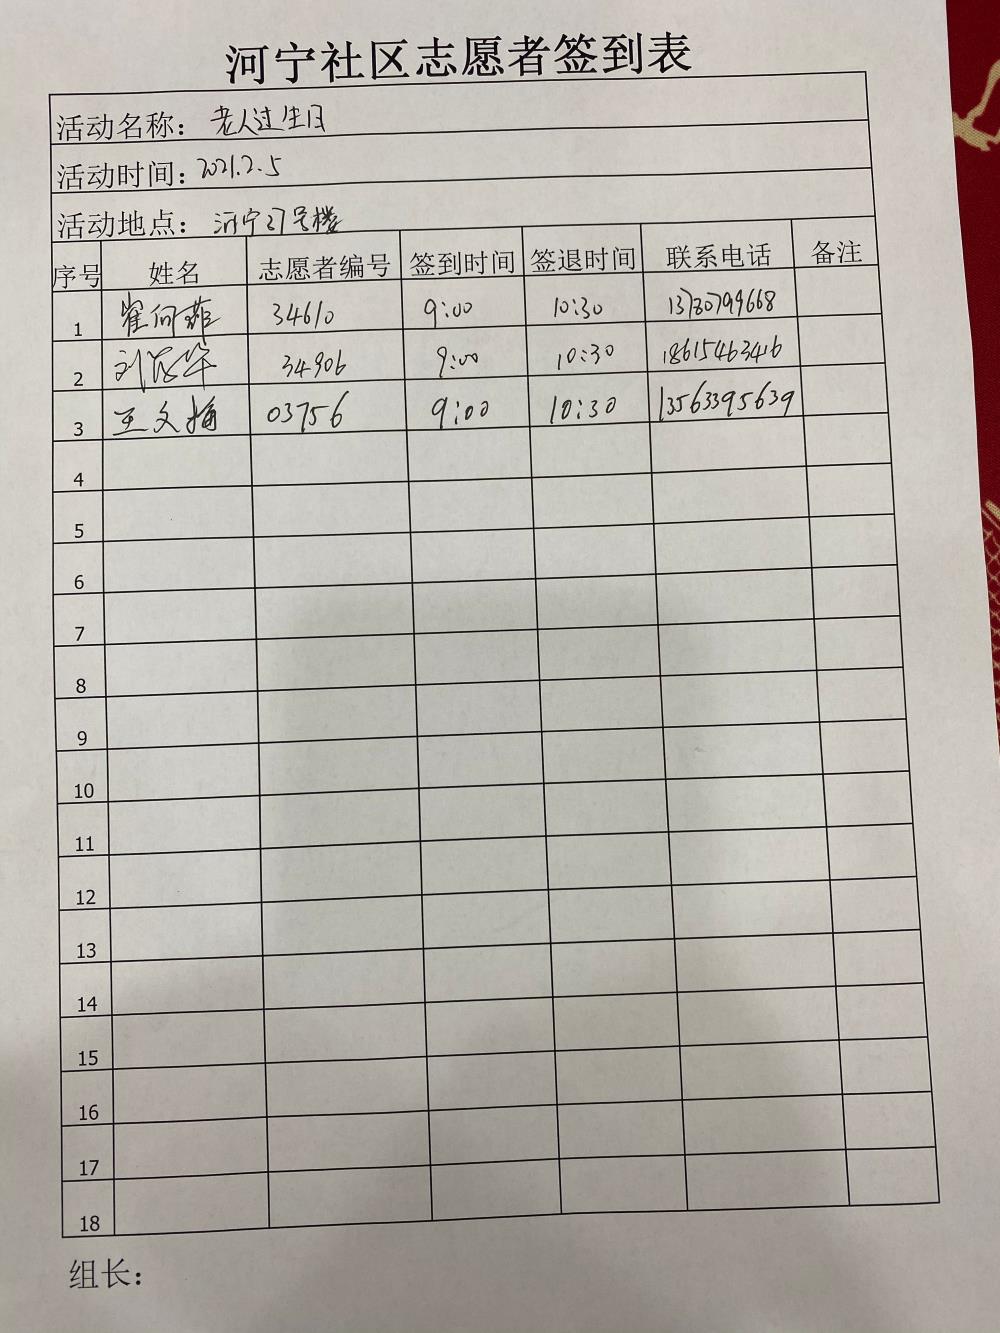 河宁社区志愿者签到表
活动名称: 老人过生日
活动时间: 2021.2.5
活动地点: 河宁27号楼
序号 姓名 志愿者编号 签到时间 签退时间 联系电话 备注
1 崔向 34610 9:00 10:30 13780799668
2 刘 华 34906 9:00 10:30 18615463416
3 王文梅 03756 9:00 10:30 13563395639
4
5
6
7
8
9
10
11
12
13
14
15
16
17
18
组长: